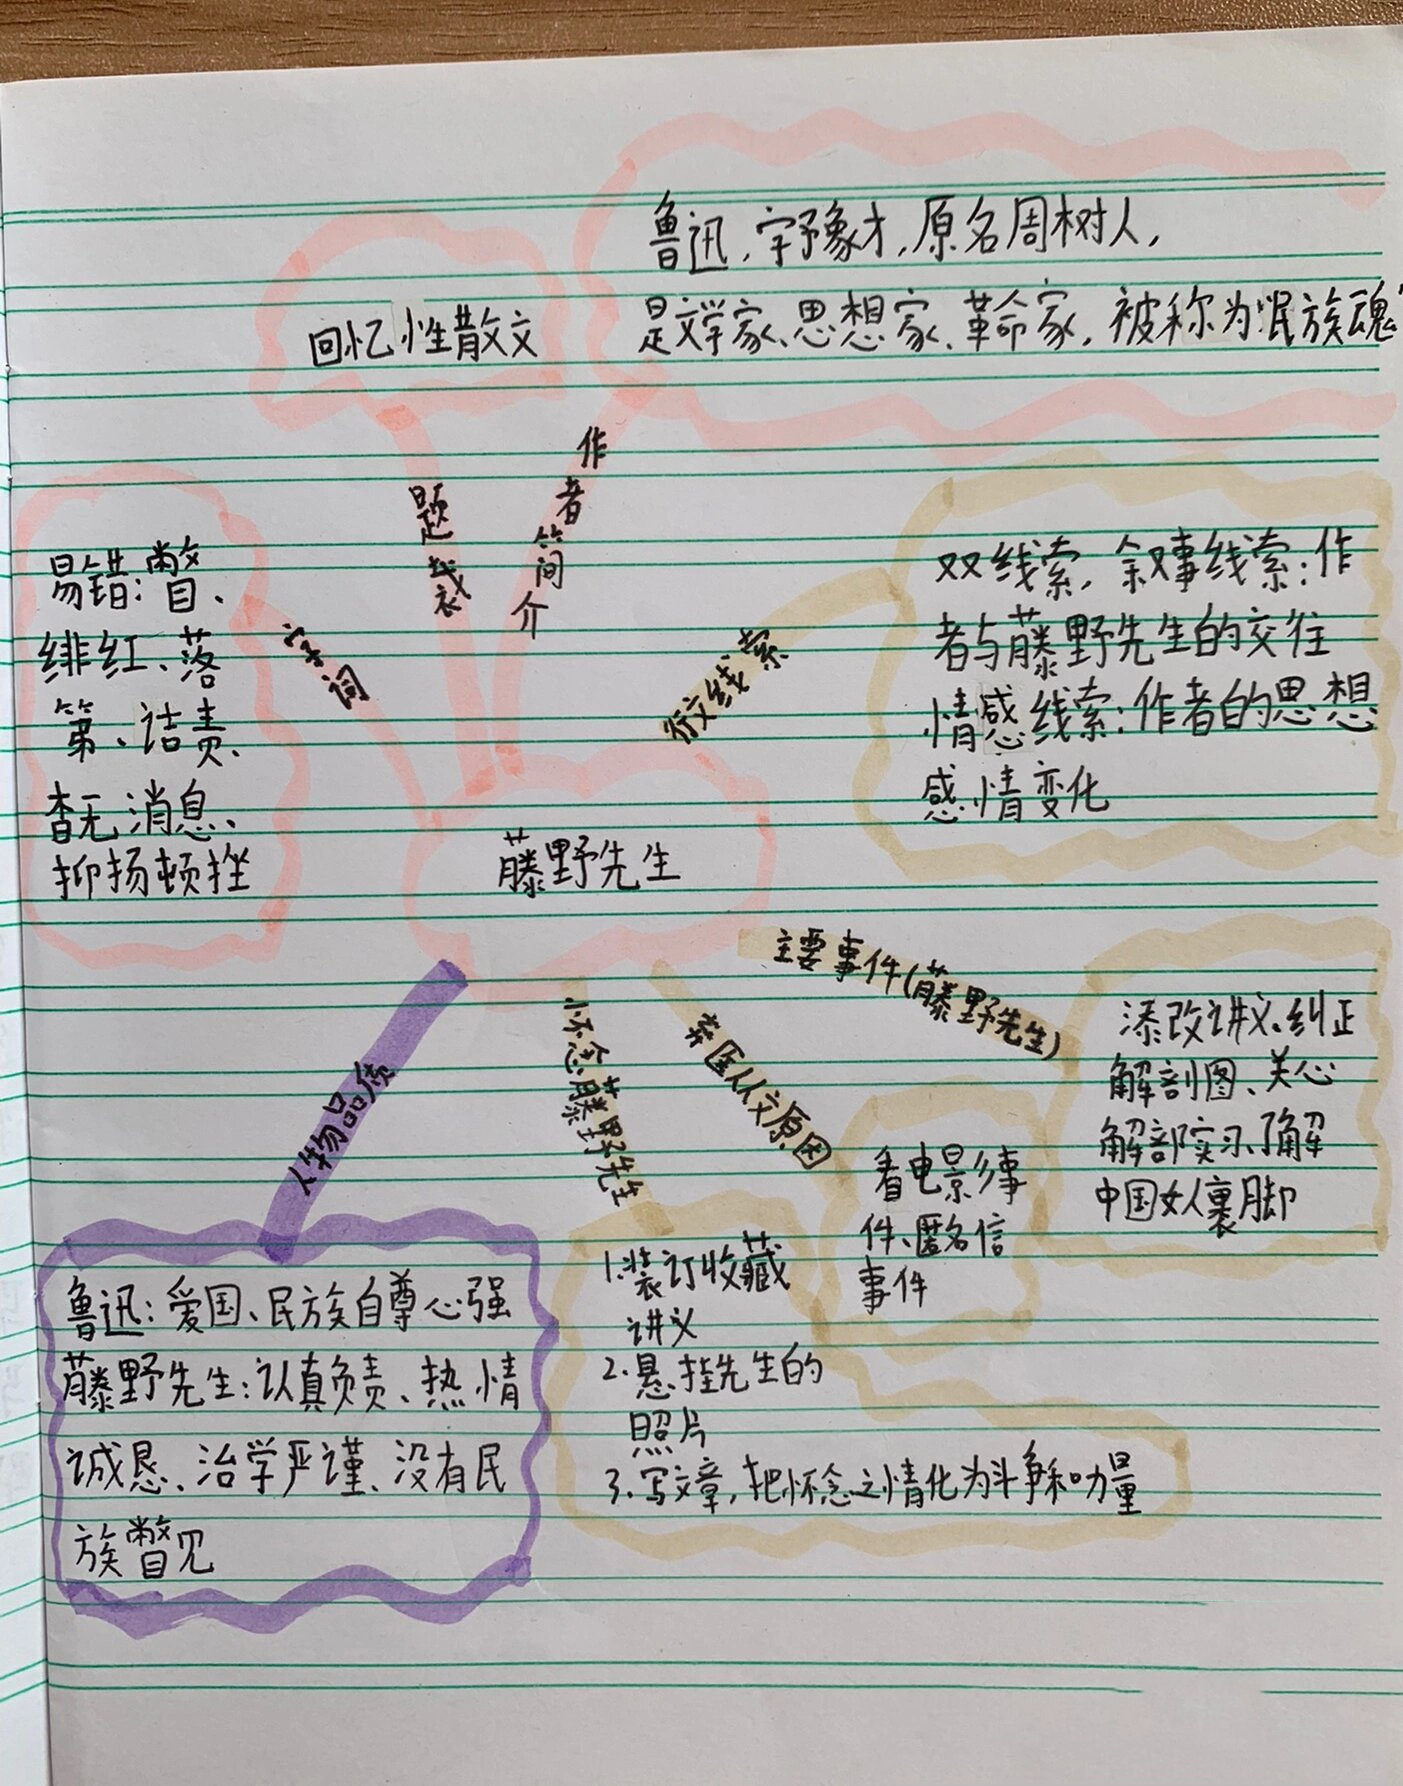 鲁迅，字豫才，原名周树人，
是文学家、思想家、革命家，被称为"民族魂"
回忆性散文
作者简介
题裁
字词
易错：瞥、
绯红、落
第、诘责、
杳无消息、
抑扬顿挫
行文线索
双线索，叙事线索：作
者与藤野先生的交往
情感线索：作者的思想
感情变化
藤野先生
主要事件(藤野先生)
添改讲义、纠正
解剖图、关心
解部实习、了解
中国女人裹脚
弃医从文原因
看电影事
件、匿名信
事件
怀念藤野先生
1.装订收藏
讲义
2.悬挂先生的
照片
3.写文章，把怀念之情化为斗争和力量
人物品质
鲁迅：爱国、民族自尊心强
藤野先生：认真负责、热情
诚恳、治学严谨、没有民
族瞥见